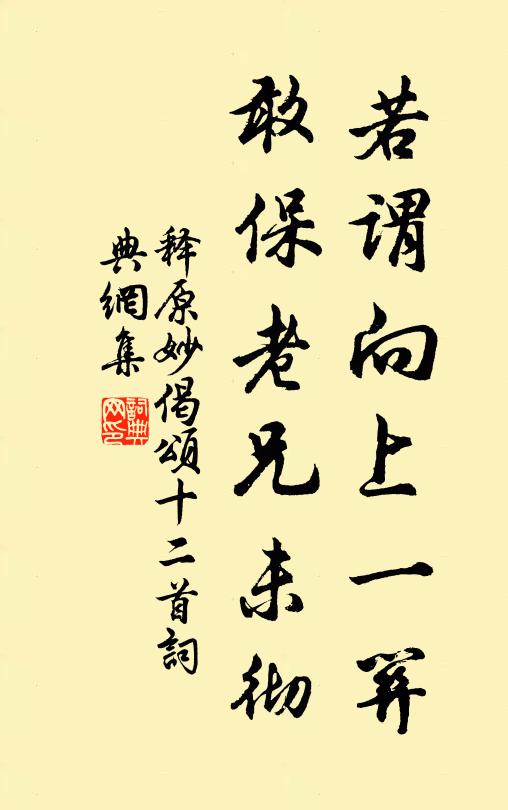 若谓向上一関
敢保老兄未彻
释原妙偈颂十二首詞
典網集
詞典網印